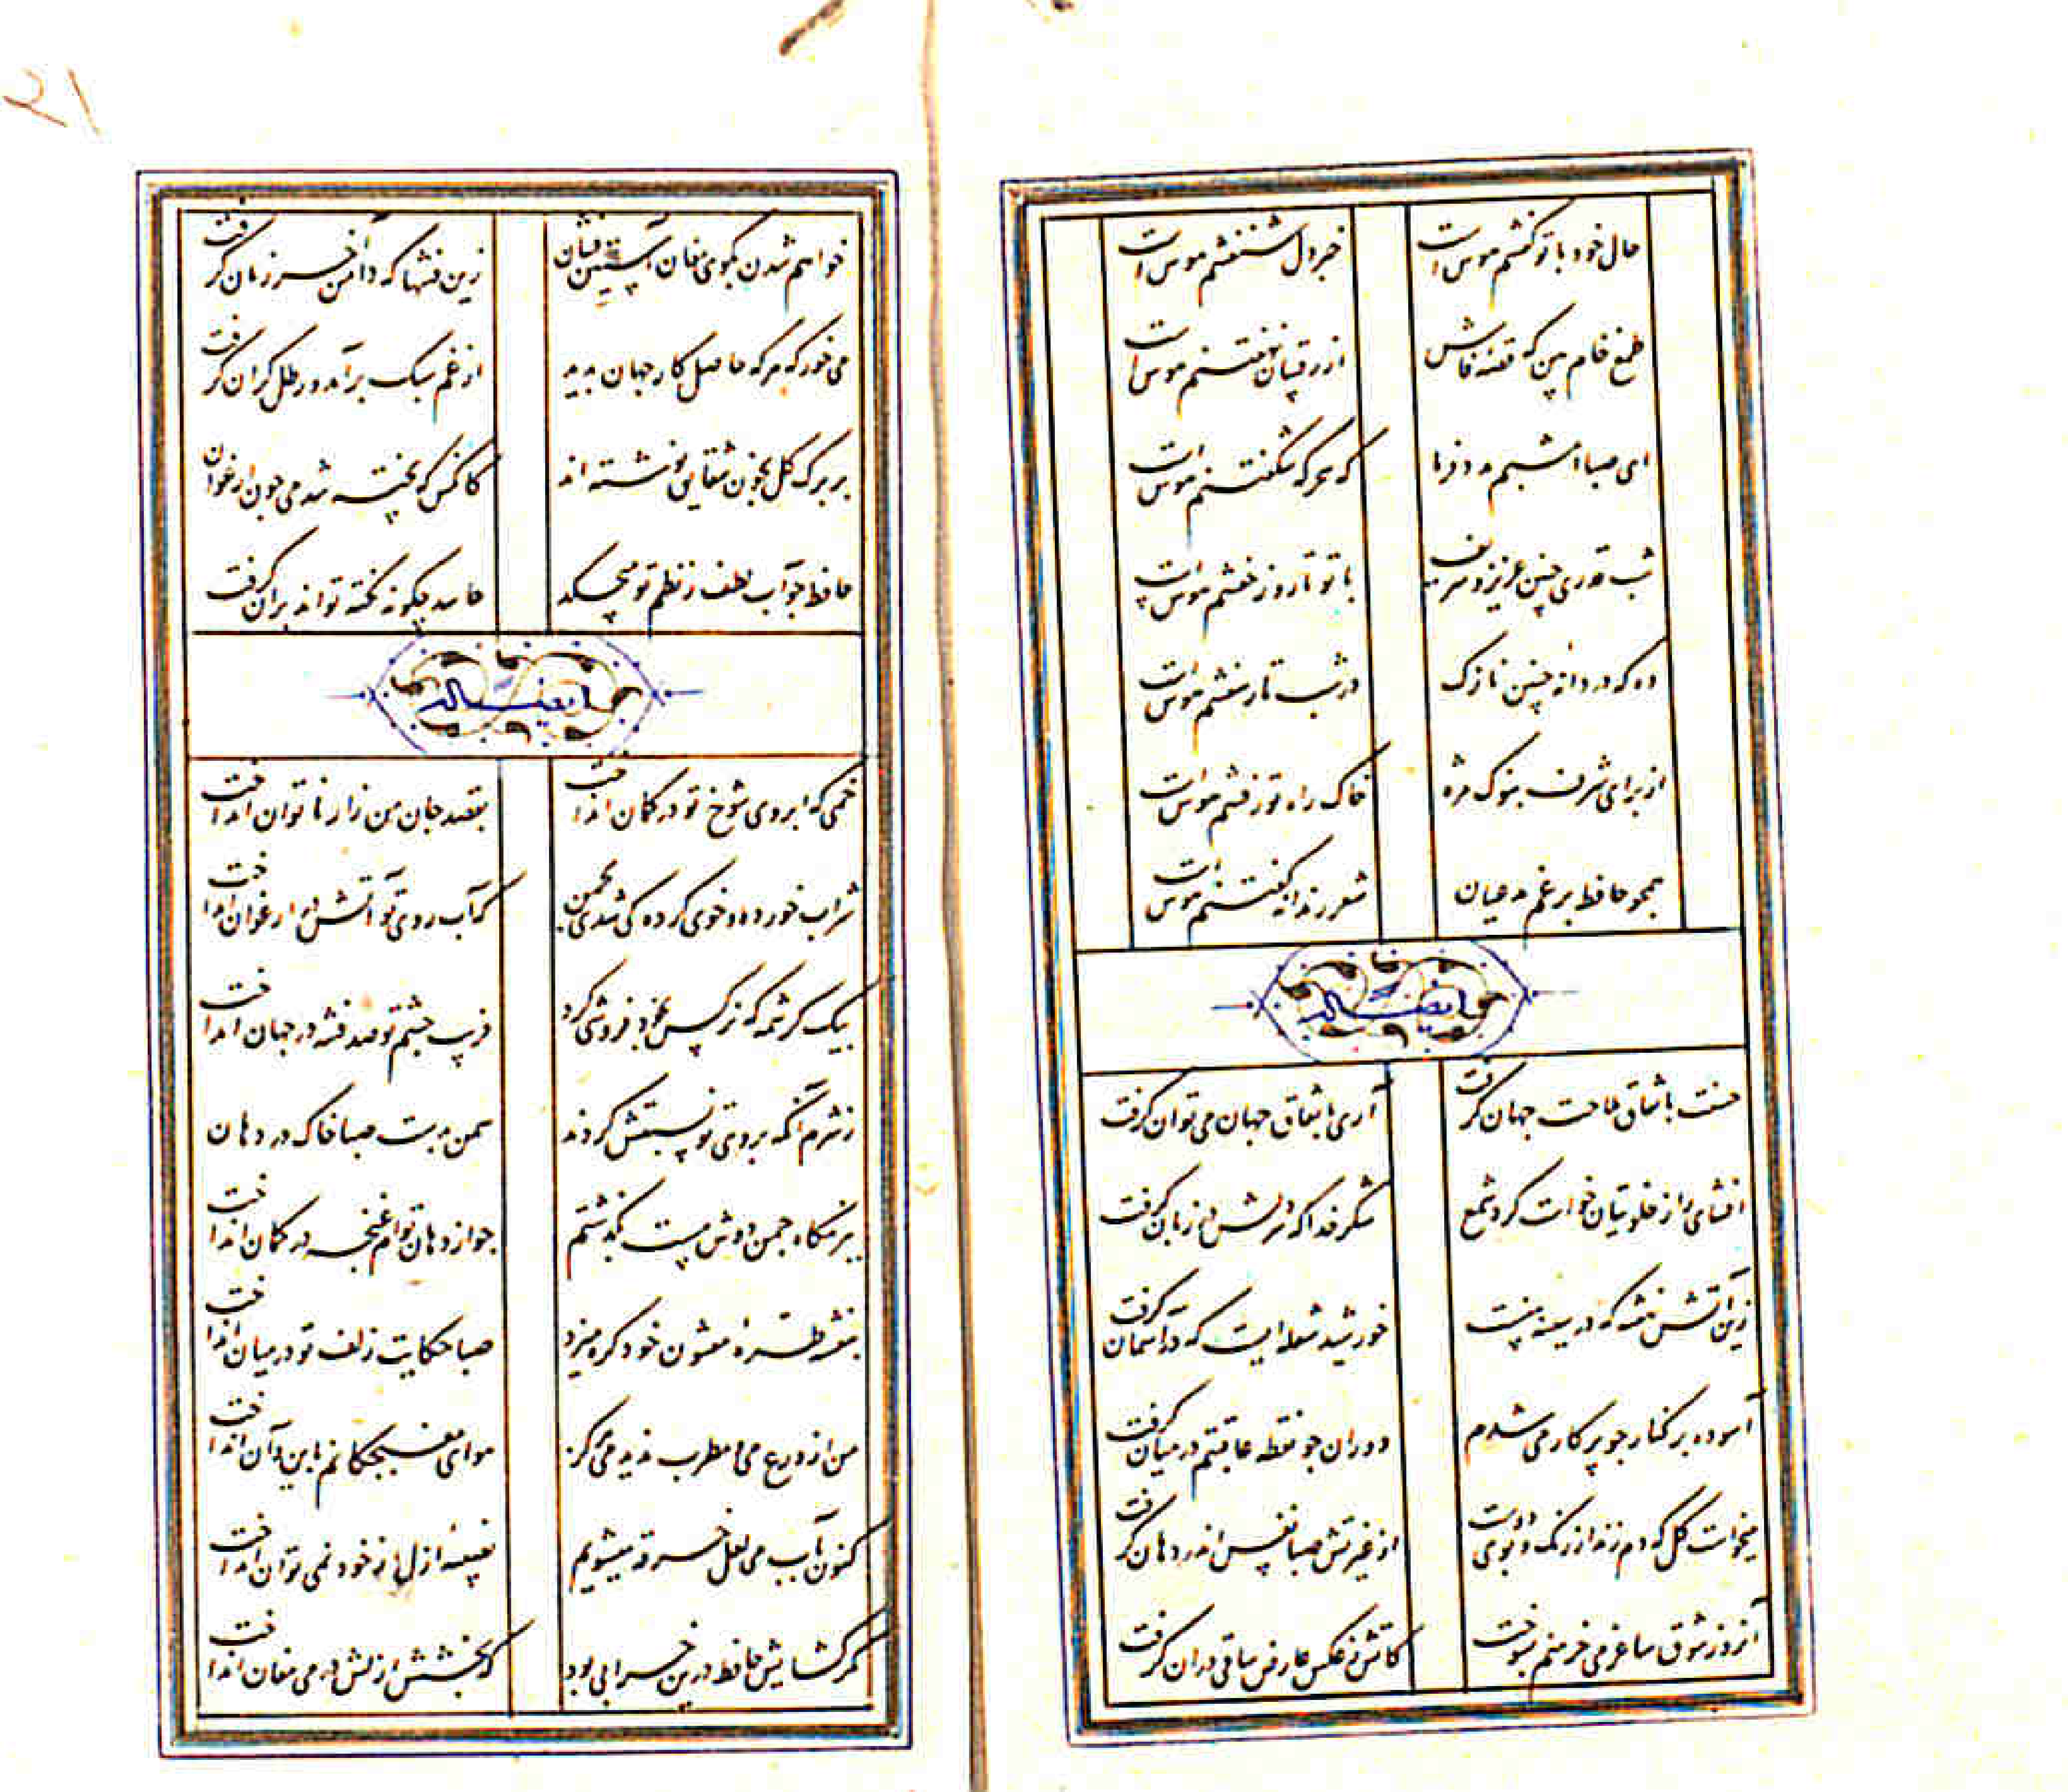 حال خود با تو گفتنم هوس است
خبر دل شنفتنم هوس است
طمع خام بین که قصه فاش
از رقیبان نهفتنم هوس است
ای صبا امشبم مدد فرما
که سحرگه شکفتنم هوس است
شب قدری چنین عزیز و شریف
با تو تا روز خفتنم هوس است
وه که دردانه چنین نازک
در شب تار سفتنم هوس است
از برای شرف بنوک مژه
خاک راه تو رفتنم هوس است
همچو حافظ برغم مدعیان
شعر رندانه گفتنم هوس است
ایضاً له
حسنت باتفاق ملاحت جهان گرفت
آری باتفاق جهان می توان گرفت
افشای راز خلوتیان خواست کرد شمع
شکر خدا که سر دلش در زبان گرفت
زین آتش نهفته که در سینه منست
خورشید شعله ایست که در آسمان گرفت
آسوده بر کنار چو پرکار می شدم
دوران چو نقطه عاقبتم در میان گرفت
میخواست گل که دم زند از رنگ و بوی دوست
از غیرتش صبا نفس اندر دهان گرفت
آنروز شوق ساغر می خرمنم بسوخت
کاتش ز عکس عارض ساقی در آن گرفت
۲۱
خواهم شدن بکوی مغان آستین فشان
زین فتنها که دامن آخر زمان گرفت
می خور که هر که حاصل کار جهان بدید
از غم سبک برآمد و رطل گران گرفت
بر برک گل بخون شقایق نوشته اند
کانکس که پخته شد می چون ارغوان
حافظ چو آب لطف ز نظم تو میچکد
حاسد چگونه نکته تواند بران گرفت
ایضاً له
خمی که ابروی شوخ تو در کمان انداخت
بقصد جان من زار ناتوان انداخت
شراب خورده و خوی کرده کی شدی بچمن
که آب روی تو آتش در ارغوان انداخت
بیک کرشمه که نرگس بخود فروشی کرد
فریب چشم تو صد فتنه در جهان انداخت
ز شرم آنکه بروی تو نسبتش کردند
سمن بدست صبا خاک در دهان
ببزمگاه چمن دوش مست بگذشتم
چو از دهان توام غنچه در کمان انداخت
بنفشه طره مفتون خود گره میزد
صبا حکایت زلف تو در میان انداخت
من از ورع می و مطرب ندیدمی هرگز
هوای مغبچگانم باین و آن انداخت
کنون بآب می لعل خرقه میشویم
نصیبه ازل از خود نمی توان انداخت
مگر گشایش حافظ درین خرابی بود
که بخشش ازلش در می مغان انداخت